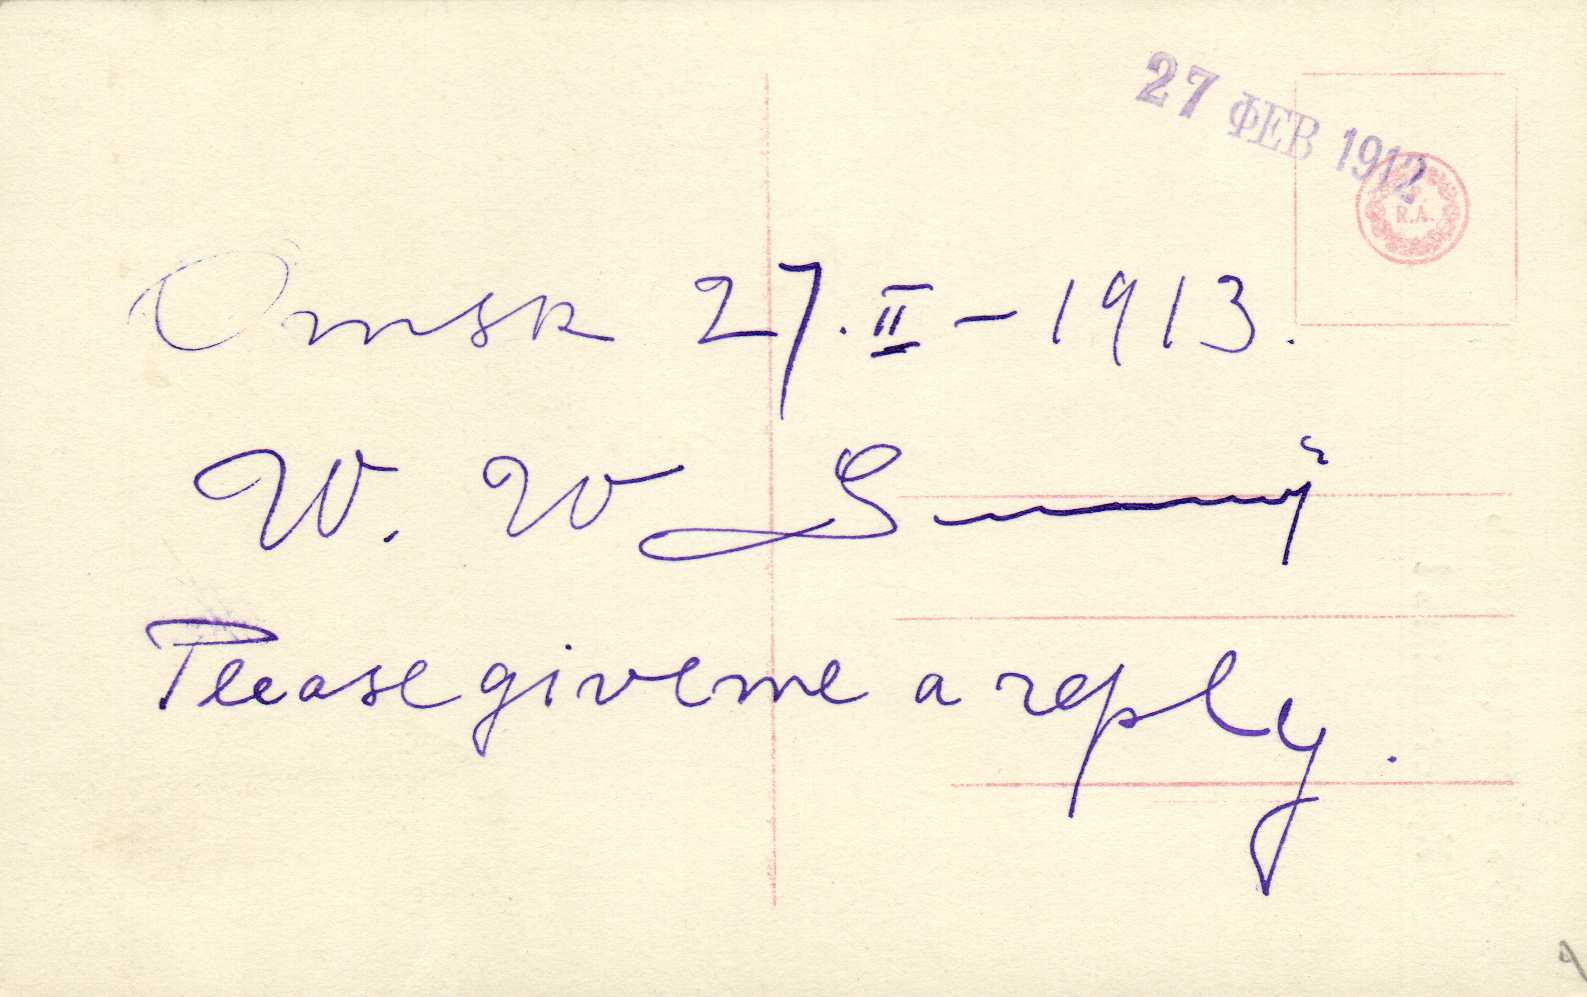 27 ФЕВ 1912
R.A.
Omsk 27. II – 1913.
W. W
Please give me a reply.